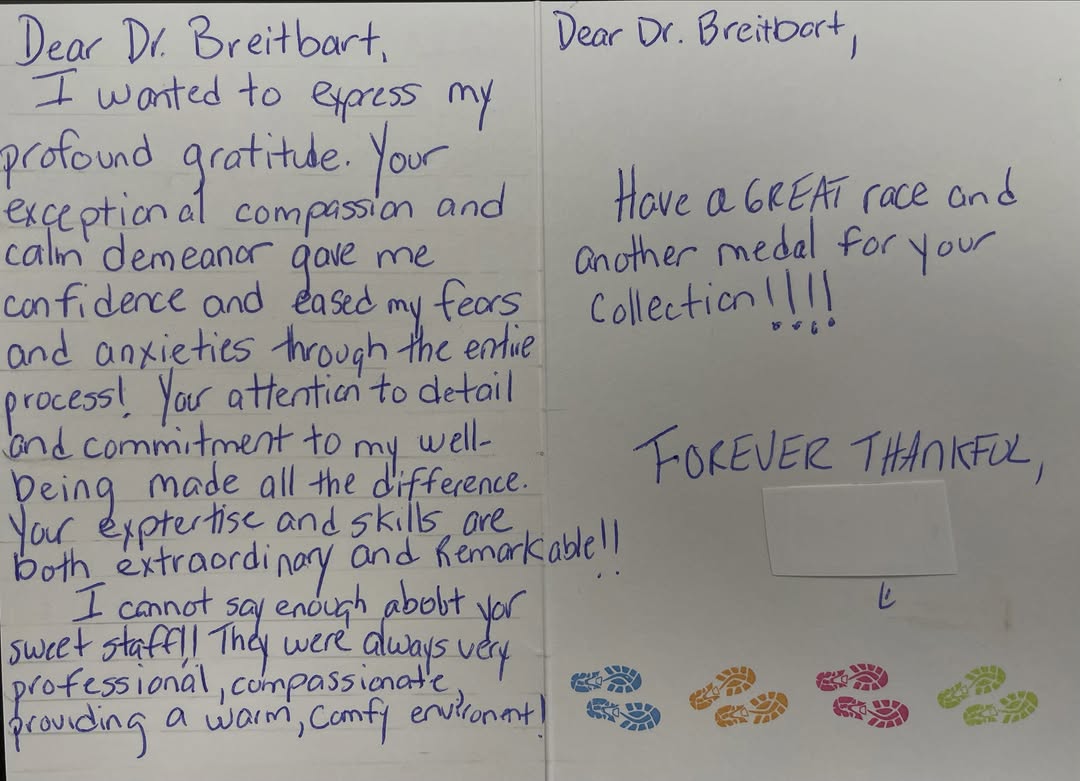 Dear Dr. Breitbart,
I wanted to express my
profound gratitude. Your
exceptional compassion and
calm demeanor gave me
confidence and eased my fears
and anxieties through the entire
process! Your attention to detail
and commitment to my well-
being made all the difference.
Your exptertise and skills are
both extraordinary and Remarkable!!
I cannot say enough about your
sweet staff!! They were always very
professional, compassionate,
providing a warm, comfy environent!
Dear Dr. Breitbart,
Have a GREAT race and
another medal for your
collection!!!!
FOREVER THANKFUL,